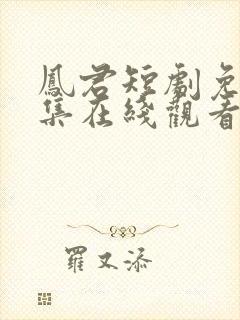 鳳君短劇免
集在綫觀看
羅又添